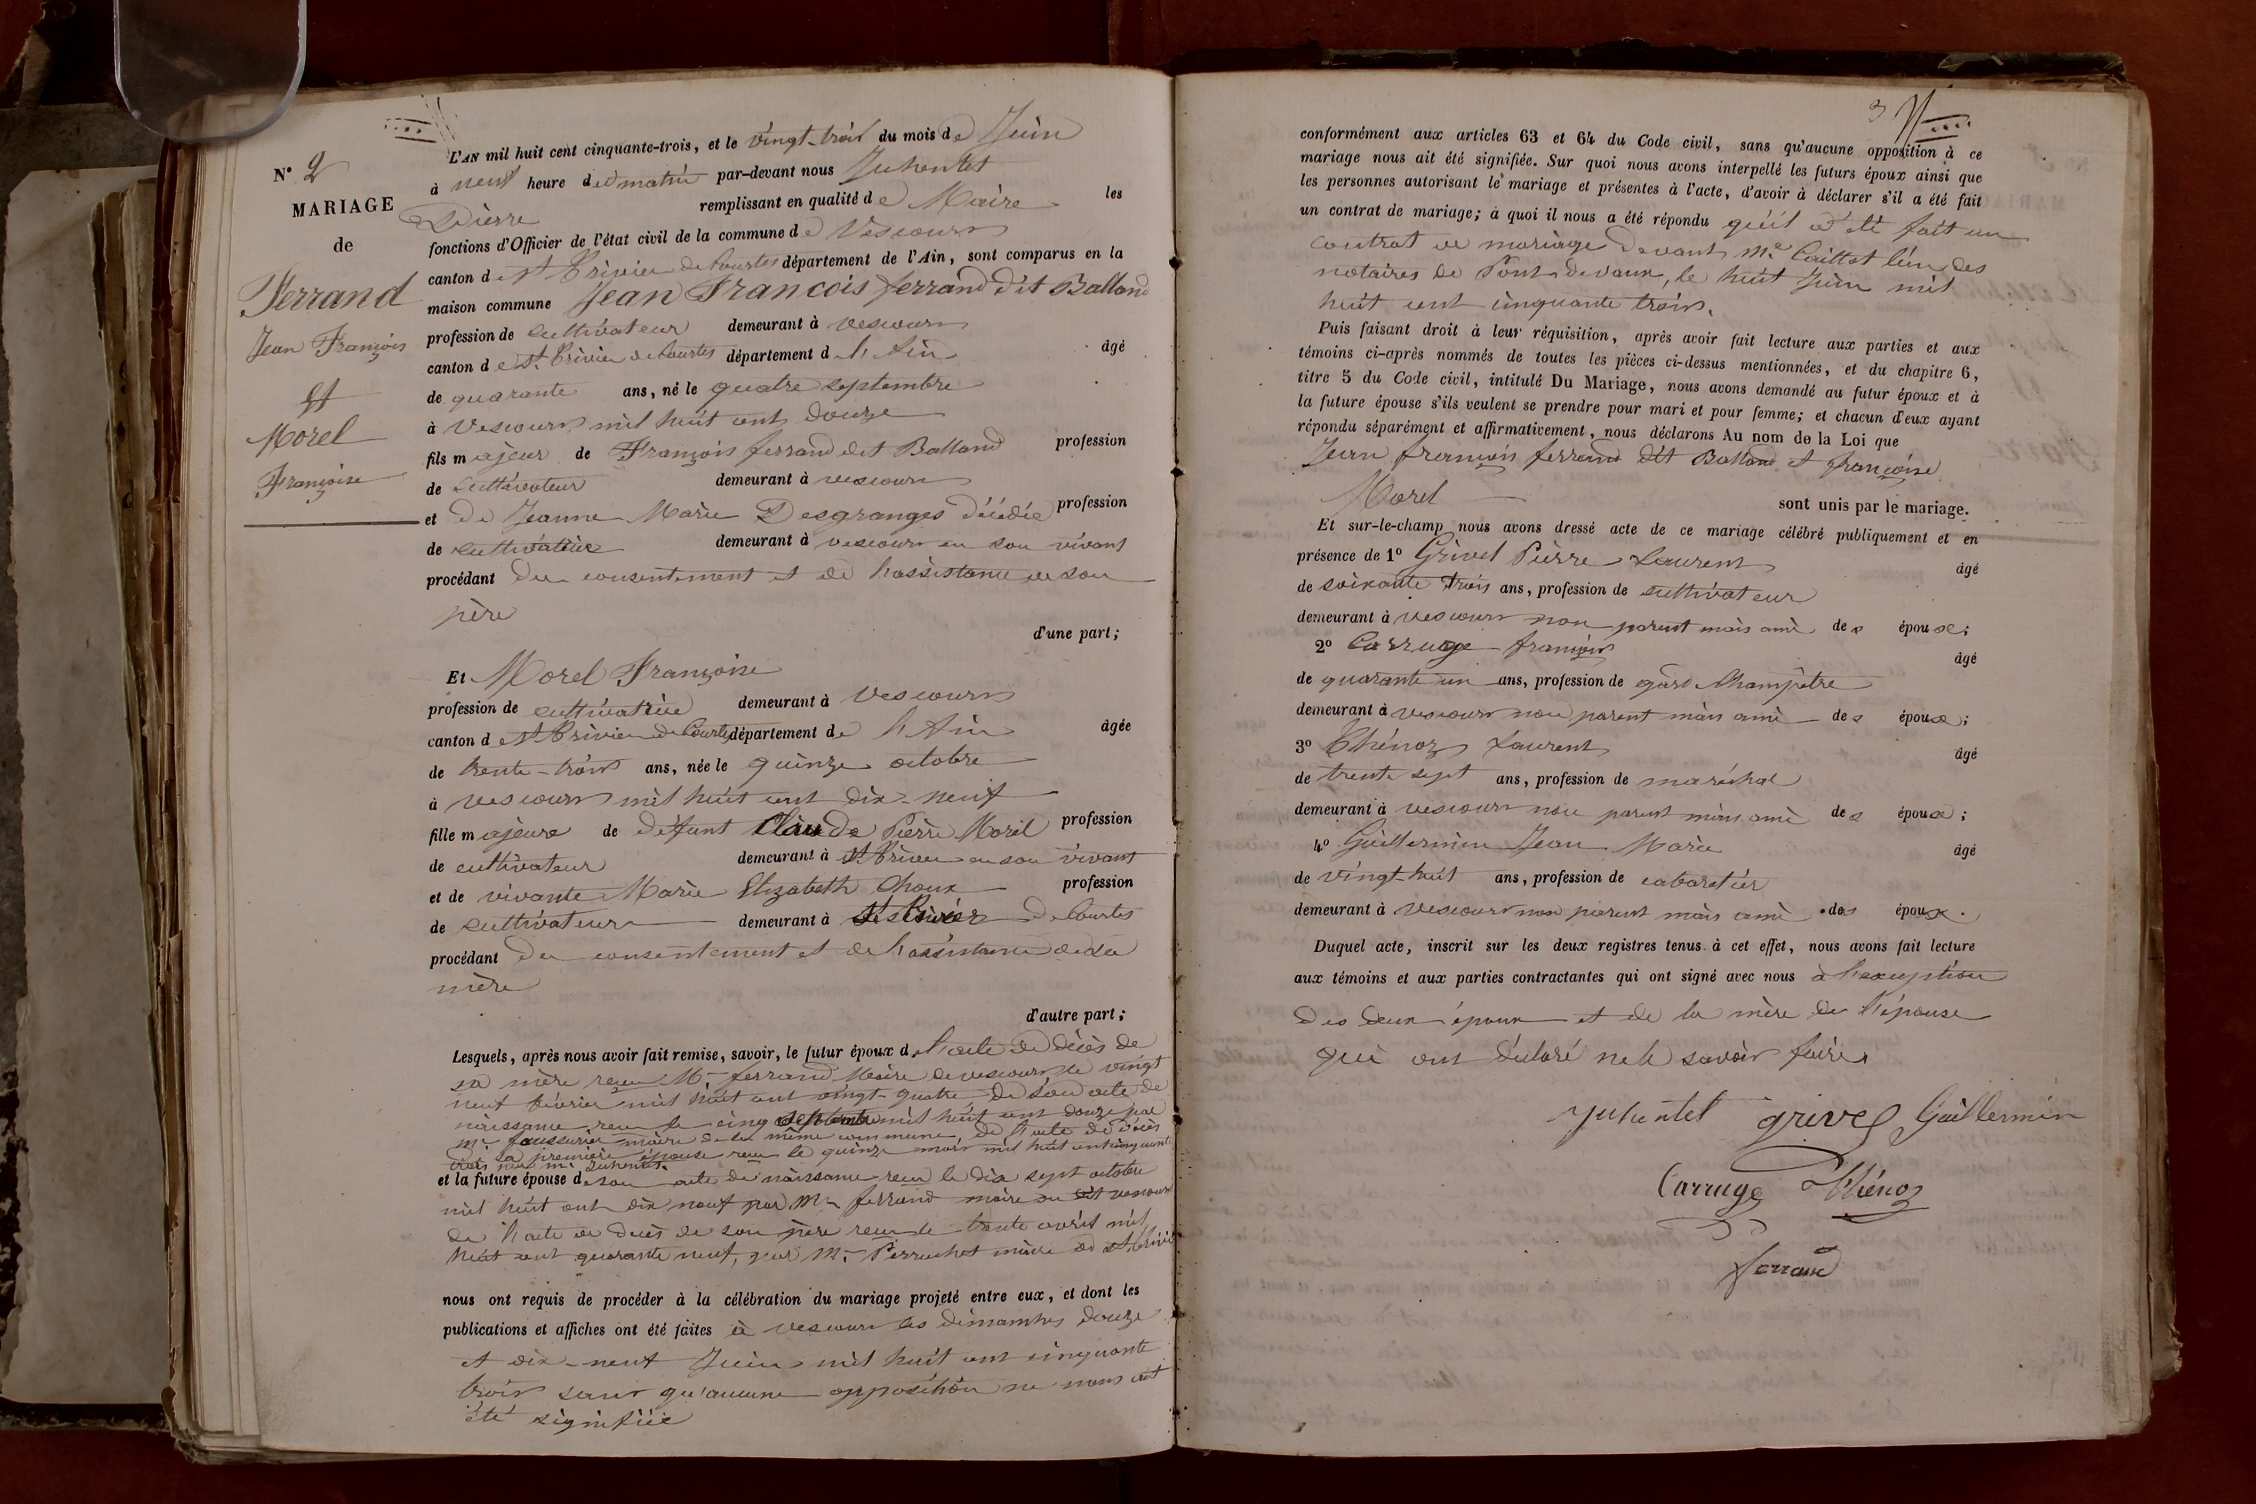 N° 2
MARIAGE
de
Ferrand
Jean François
Et
Morel
Françoise
L'AN mil huit cent cinquante-trois, et le vingt-trois du mois de Juin
à neuf heure du matin par-devant nous Juhentet
Pierre remplissant en qualité de Maire les
fonctions d'Officier de l'état civil de la commune de Vescours
canton de St Trivier de Courtes département de l'Ain, sont comparus en la
maison commune Jean François ferrand dit Balland
profession de cultivateur demeurant à vescours
canton de St. Trivier de Courtes département de l'Ain âgé
de quarante ans, né le quatre septembre
à Vescours mil huit cent douze
fils majeur de François ferrand dit Balland profession
de cultivateur demeurant à vescours
et de Jeanne Marie Desgranges décédée profession
de cultivatrice demeurant à vescours en son vivant
procédant du consentement et de l'assistance de son
père
d'une part;
Et Morel Françoise
profession de cultivatrice demeurant à vescours
canton de St Trivier de Courtes département de l'Ain âgée
de trente-trois ans, née le quinze octobre
à vescours mil huit cent dix-neuf
fille majeure de défunt Claude Pierre Morel profession
de cultivateur demeurant à St Trivier en son vivant
et de vivante Marie Elizabeth Choux profession
de cultivateur demeurant à St Trivier de Courtes
procédant du consentement et de l'assistance de sa
mère
d'autre part;
Lesquels, après nous avoir fait remise, savoir, le futur époux de l'acte de décès de
sa mère reçu Mr ferrand Maire de vescours le vingt
neuf février mil huit cent vingt-quatre de son acte de
naissance reçu le cinq septembre mil huit cent douze par
Mr maire de la même commune, de l'acte de décès
de sa première épouse reçu le quinze mars mil huit cent cinquante
trois par Mr. Juhentet.
et la future épouse de son acte de naissance reçu le dix sept octobre
mil huit cent dix neuf par Mr ferrand maire du dit vescours
de l'acte de décès de son père reçu le trente avril mil
huit cent quarante neuf, par Mr Perruchet maire de St Trivier
nous ont requis de procéder à la célébration du mariage projeté entre eux, et dont les
publications et affiches ont été faites à vescours les dimanches douze
et dix-neuf Juin mil huit cent cinquante
trois sans qu'aucune opposition ne nous ait
été signifiée
3
conformément aux articles 63 et 64 du Code civil, sans qu'aucune opposition à ce
mariage nous ait été signifiée. Sur quoi nous avons interpellé les futurs époux ainsi que
les personnes autorisant le mariage et présentes à l'acte, d'avoir à déclarer s'il a été fait
un contrat de mariage; à quoi il nous a été répondu qu'il a été fait un
contrat de mariage devant Me Caillat l'un des
notaires de Pont-devaux, le huit Juin mil
huit cent cinquante trois.
Puis faisant droit à leur réquisition, après avoir fait lecture aux parties et aux
témoins ci-après nommés de toutes les pièces ci-dessus mentionnées, et du chapitre 6,
titre 5 du Code civil, intitulé Du Mariage, nous avons demandé au futur époux et à
la future épouse s'ils veulent se prendre pour mari et pour femme; et chacun d'eux ayant
répondu séparément et affirmativement, nous déclarons Au nom de la Loi que
Jean françois ferrand dit Balland et françoise
Morel sont unis par le mariage.
Et sur-le-champ nous avons dressé acte de ce mariage célébré publiquement et en
présence de 1° Grivel Pierre Laurent âgé
de soixante trois ans, profession de cultivateur
demeurant à vescours non parent mais ami des époux;
2° Carruge françois âgé
de quarante un ans, profession de gard Champêtre
demeurant à vescours non parent mais ami des époux;
3° Thénoz Laurent âgé
de trente sept ans, profession de maréchal
demeurant à vescours non parent mais ami des époux;
4° Guillermin Jean Marie âgé
de vingt-huit ans, profession de cabaretier
demeurant à Vescours non parent mais ami des époux.
Duquel acte, inscrit sur les deux registres tenus à cet effet, nous avons fait lecture
aux témoins et aux parties contractantes qui ont signé avec nous à l'exception
des deux époux et de la mère de l'épouse
qui ont déclaré ne le savoir faire.
Juhentet grivel Guillermin
Carruge Thénoz
ferrand